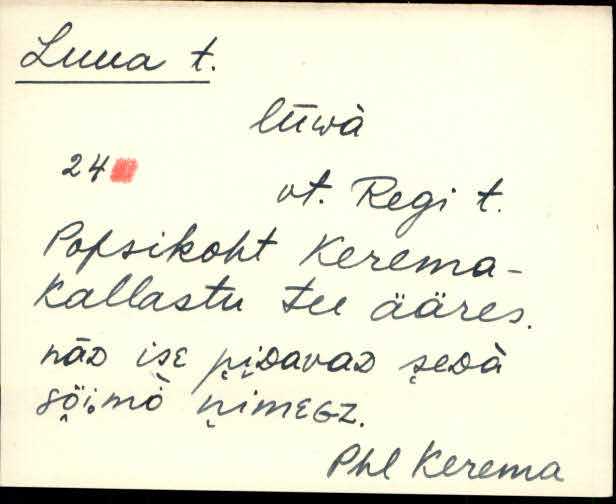 Luua t.
lūwà
24
vt. Regi t.
Popsikoht Kerema-
Kallastu tee ääres.
nāᴅ isᴇ pįᴅavaᴅ şᴇᴅà
sõimò ņimᴇɢᴢ.
Phl Kerema